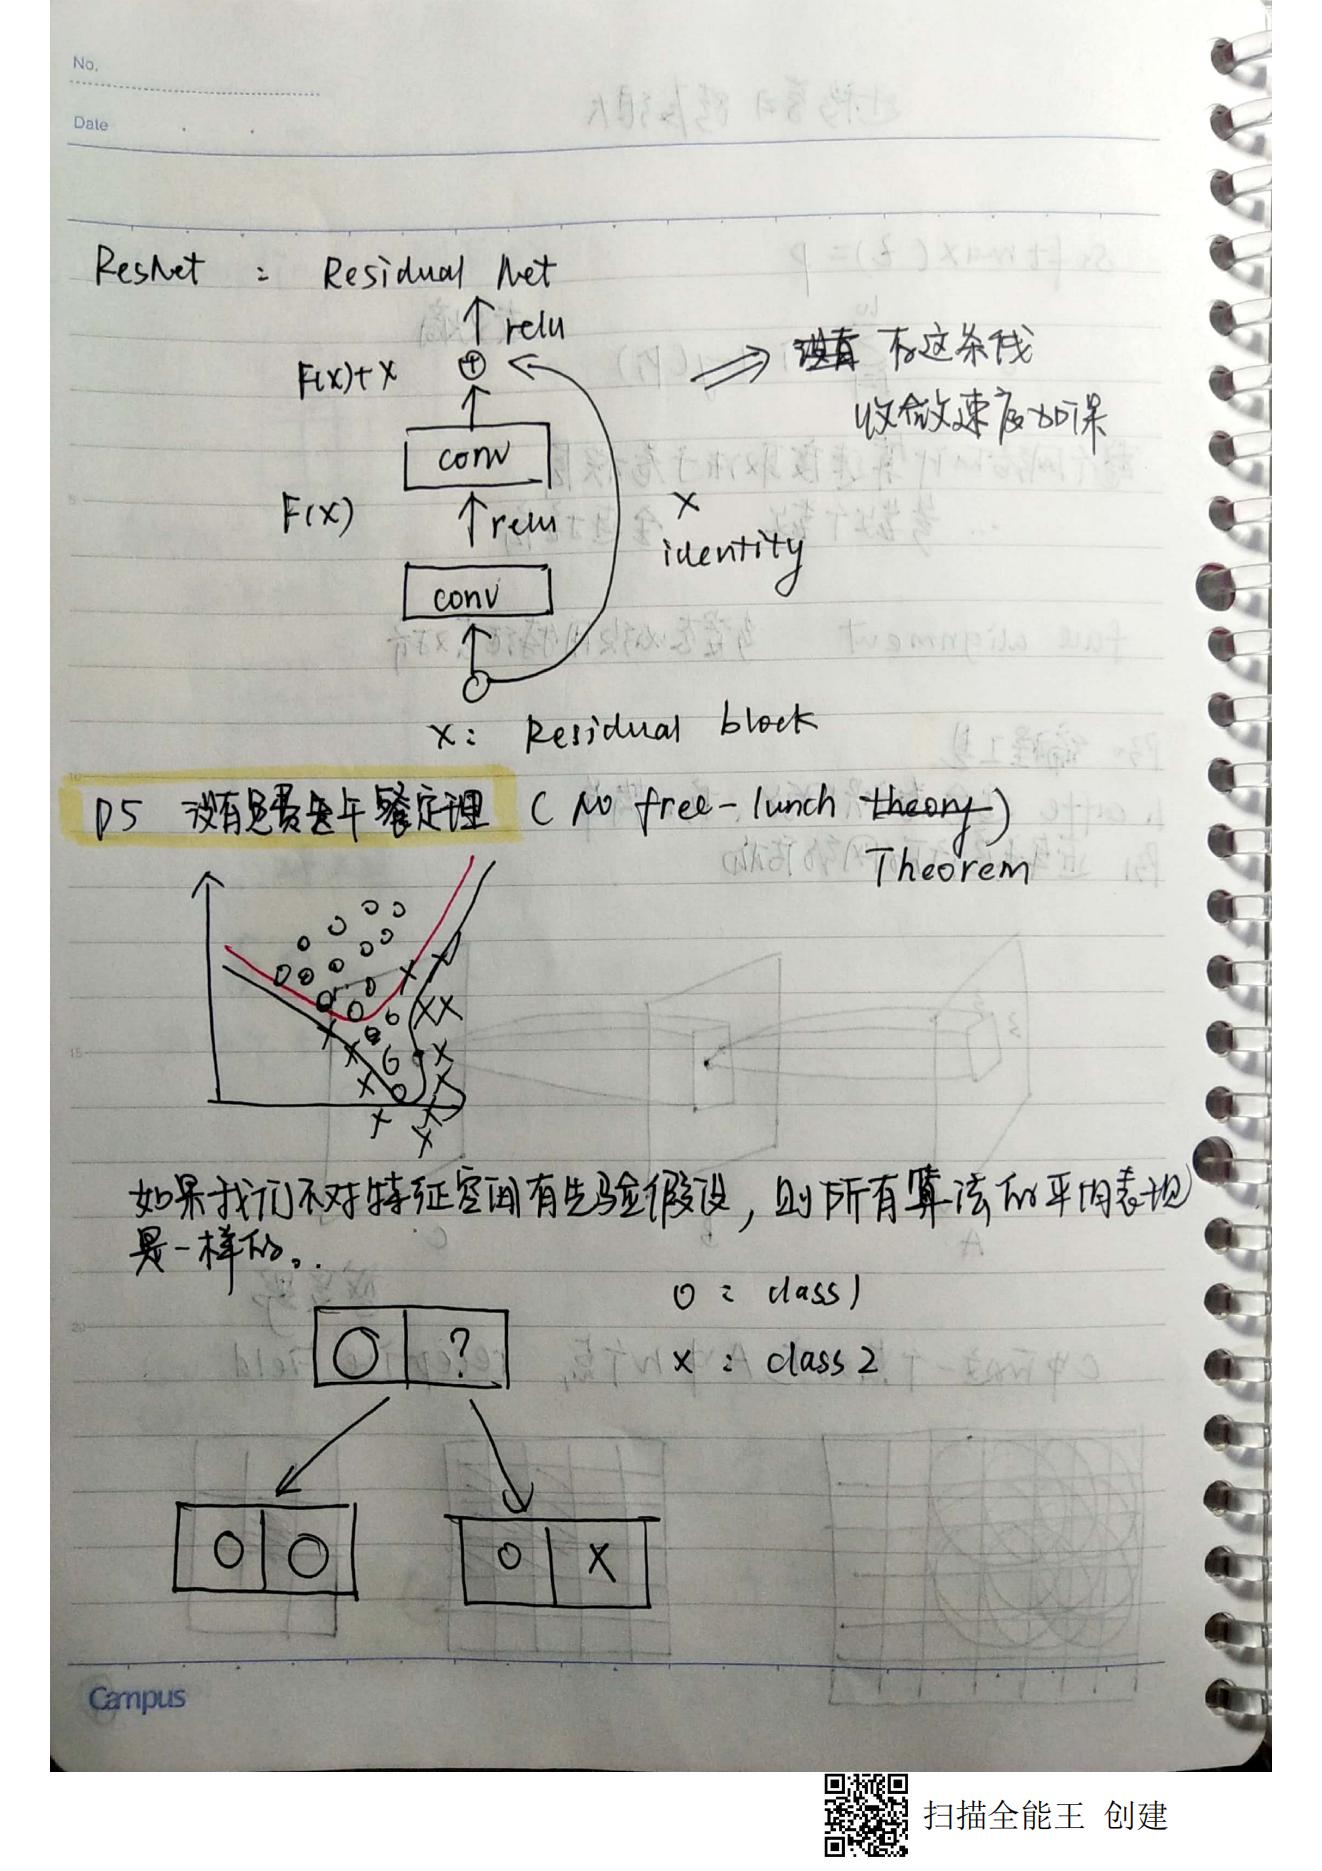 No.
Date
ResNet : Residual Net
relu
F(x)+x
有这条线
收敛速度加深
conv
F(x)
relu
x
identity
conv
x: Residual block
P5 没有免费午餐定理 (No free-lunch theory)
Theorem
如果我们不对特征空间有先验假设,则所有算法的平均表现
是一样的。
o : class 1
x : class 2
O ?
O O
O X
Campus
扫描全能王 创建